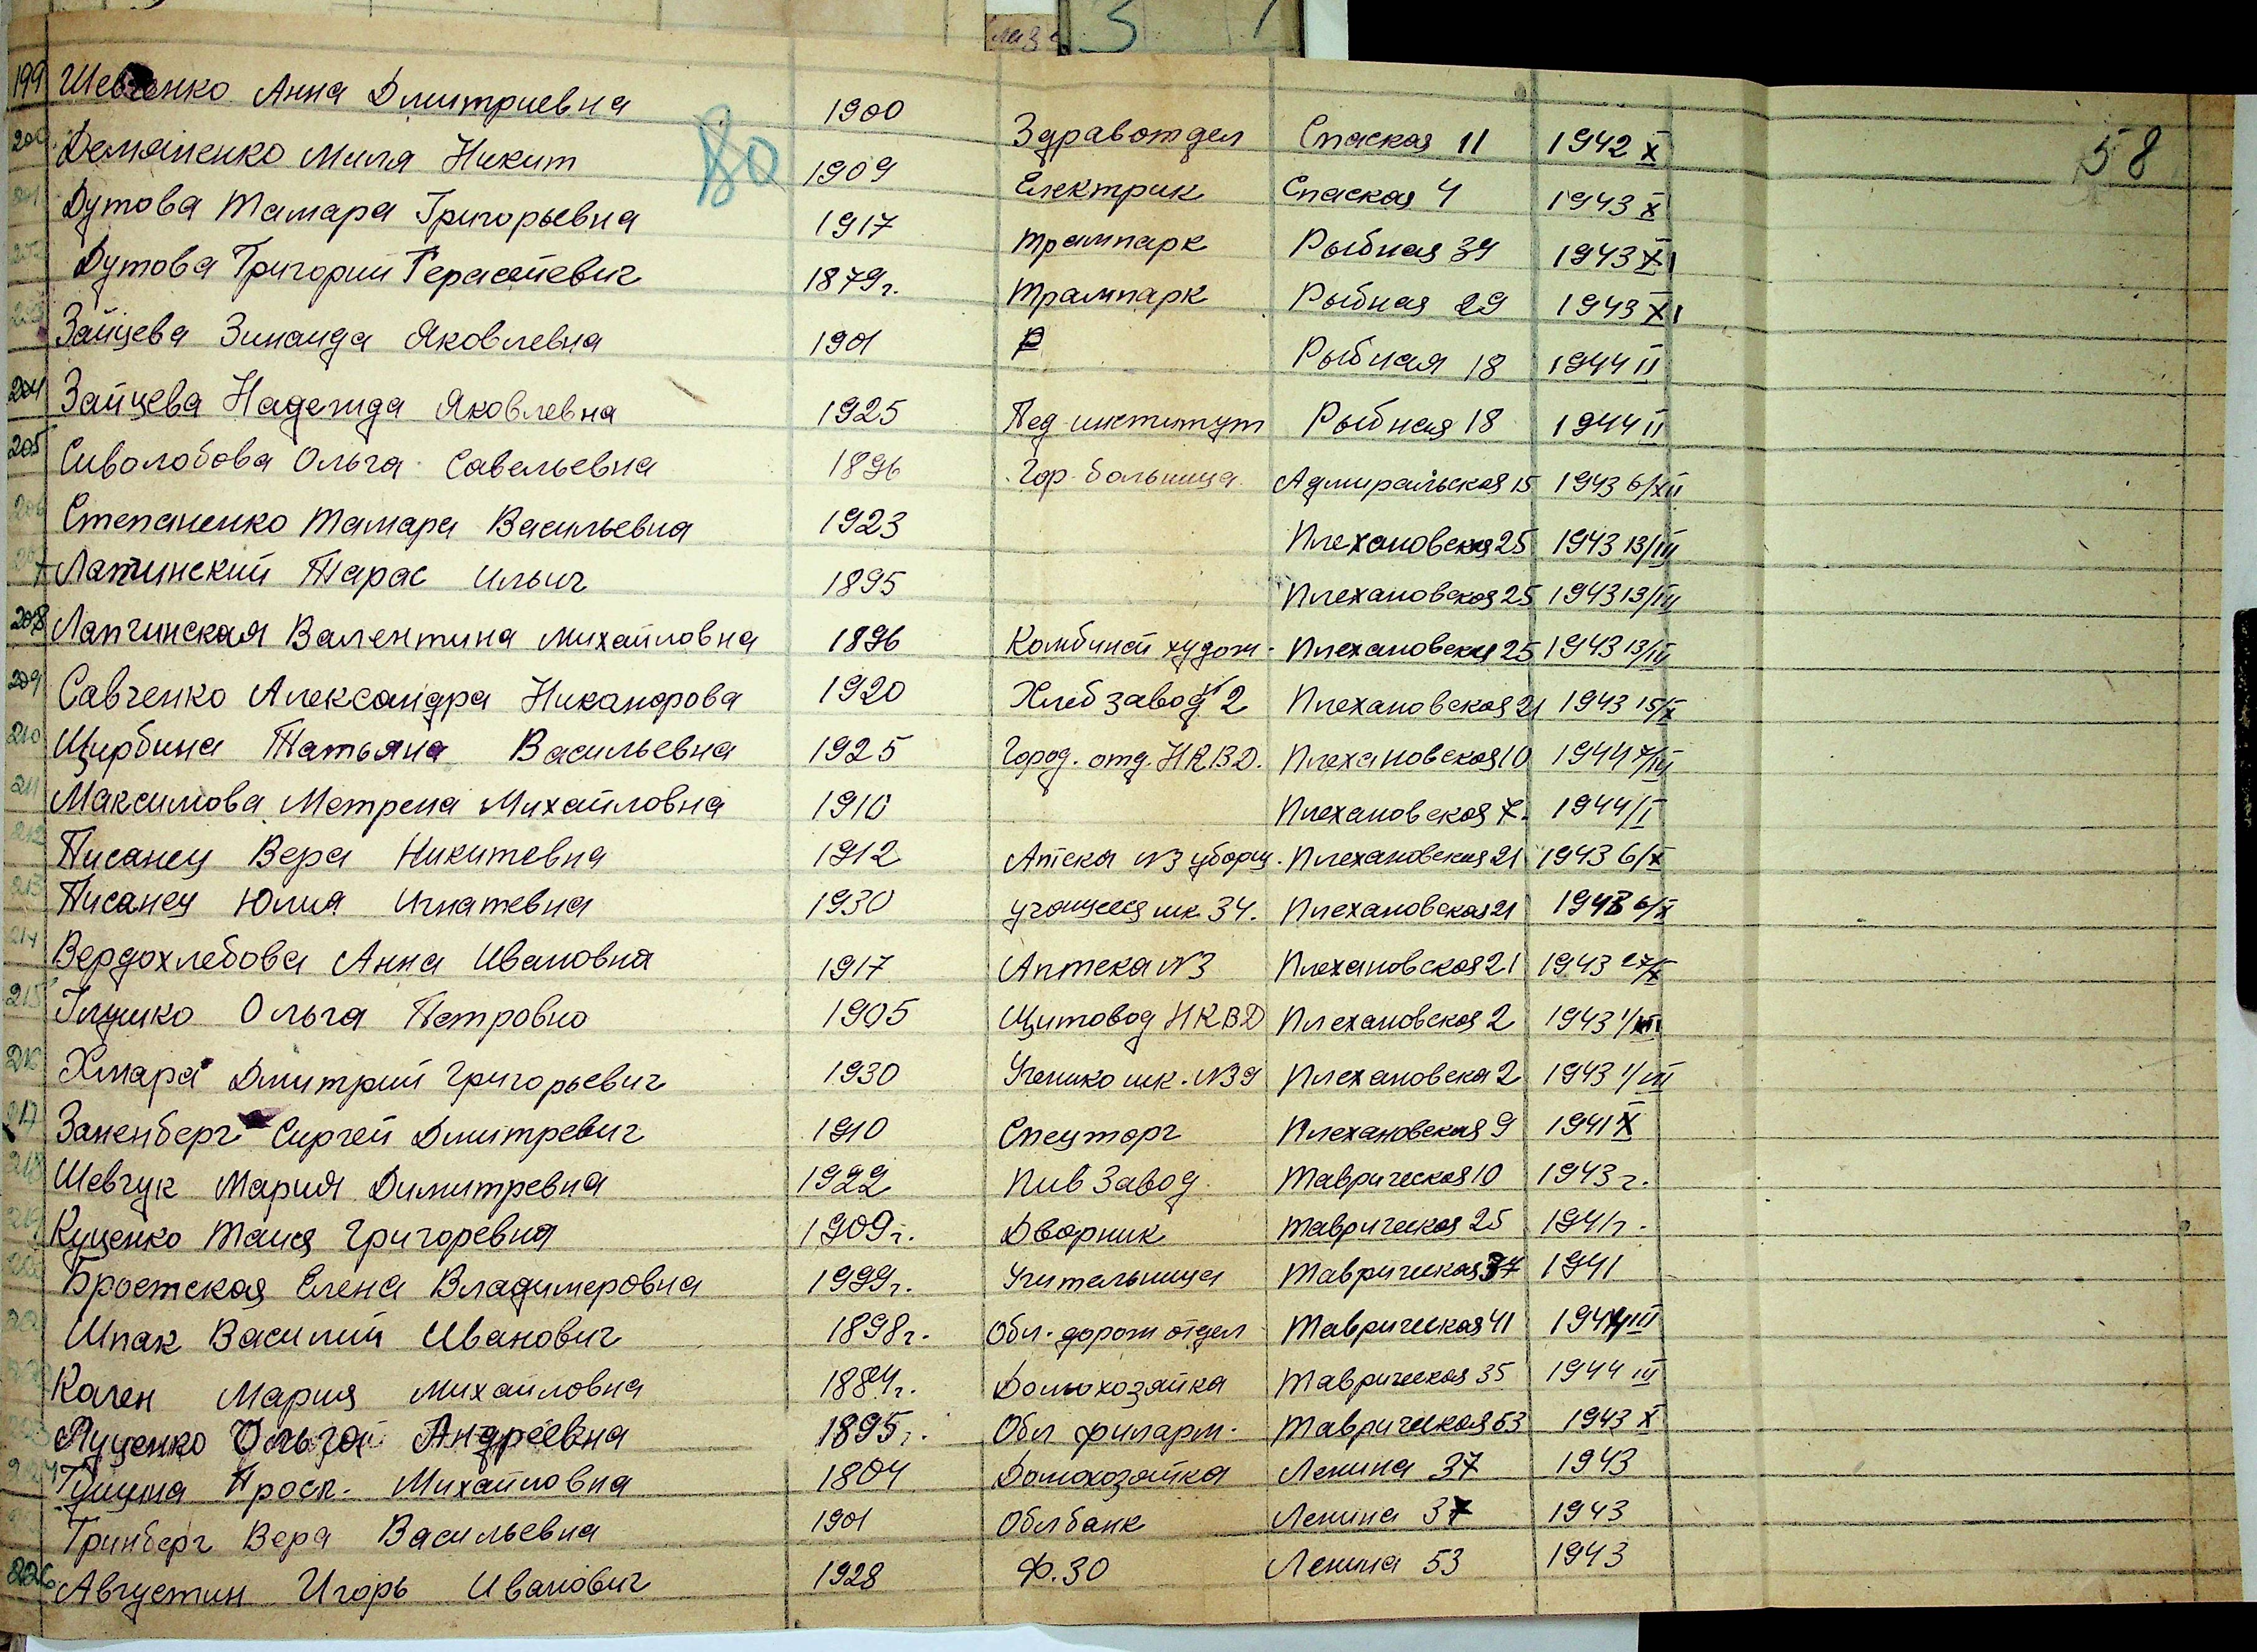 58
80
199 Шевченко Анна Дмитриевна 1900 Здравотдел Спаская 11 1942 X
200 Демяненко Миля Никит 1909 Електрик Спаская 4 1943 X
201 Дутова Тамара Григорьевна 1917 Трампарк Рыбная 39 1943 XI
202 Дутова Григорий Герасимевич 1879г. Трампарк Рыбная 29 1943 XI
203 Зайцева Зинаида Яковлевна 1901 Рыбная 18 1944 II
204 Зайцева Надежда Яковлевна 1925 Пед институт Рыбная 18 1944 II
205 Сиволобова Ольга Савельевна 1896 Гор. больница Адмиральская 15 1943 6/XII
206 Степаненко Тамара Васильевна 1923 Плехановская 25 1943 13/III
207 Лапчинский Тарас Ильич 1895 Плехановская 25 1943 13/III
208 Лапчинская Валентина Михайловна 1896 Комбинат худож. Плехановская 25 1943 13/III
209 Савченко Александра Никандрова 1920 Хлебзавод 2 Плехановская 21 1943 15/X
210 Щирбина Татьяна Васильевна 1925 Город. отд. НКВД. Плехановская 10 1944 7/III
211 Максимова Метрена Михайловна 1910 Плехановская 7. 1944/I
212 Писанец Вера Никитевна 1912 Аптека N3 уборщ. Плехановская 21 1943 6/X
213 Писанец Юлия Игнатевна 1930 учащееся шк. 34. Плехановская 21 1943 6/X
214 Вердохлебова Анна Ивановна 1917 Аптека N3 Плехановская 21 1943 27/X
215 Глушко Ольга Петровна 1905 Щитовод НКВД Плехановская 2 1943 1/III
216 Хмара Дмитрий Григорьевич 1930 Ученико шк. N39 Плехановска 2 1943 1/III
217 Заненберг Сиргей Дмитревич 1910 Спецторг Плехановская 9 1941 X
218 Шевчук Мария Димитревна 1922 Пив Завод Таврическая 10 1943 г.
219 Куценко Таися Григоревна 1909г. Дворник Таврическая 25 1941г.
220 Бростская Елена Владимеровна 1999г. Учительница Таврическая 37 1941
221 Шпак Василий Иванович 1898г. Обл. дорож отдел Таврическая 41 1944 III
222 Качен Мария Михайловна 1884г. Домохозяйка Таврическая 35 1944 III
223 Луценко Ольга Андреевна 1895г. Обл филарм. Таврическая 53 1943 X
224 Гущина Проск. Михайловна 1804 Домохозяйка Ленина 37 1943
Гринберг Вера Васильевна 1901 Облбанк Ленина 37 1943
226 Августин Игорь Иванович 1928 Ф.30 Ленина 53 1943